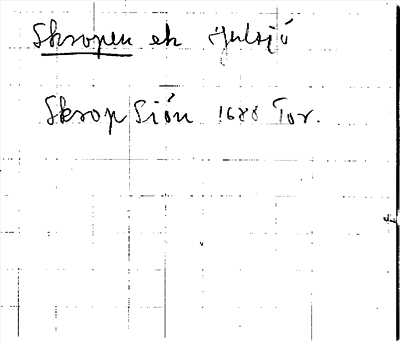 Skropen ek Hulsjö
Skropsión 1688 Tor.